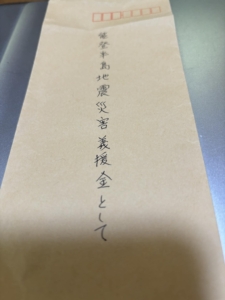 能登半島地震災害義援金として